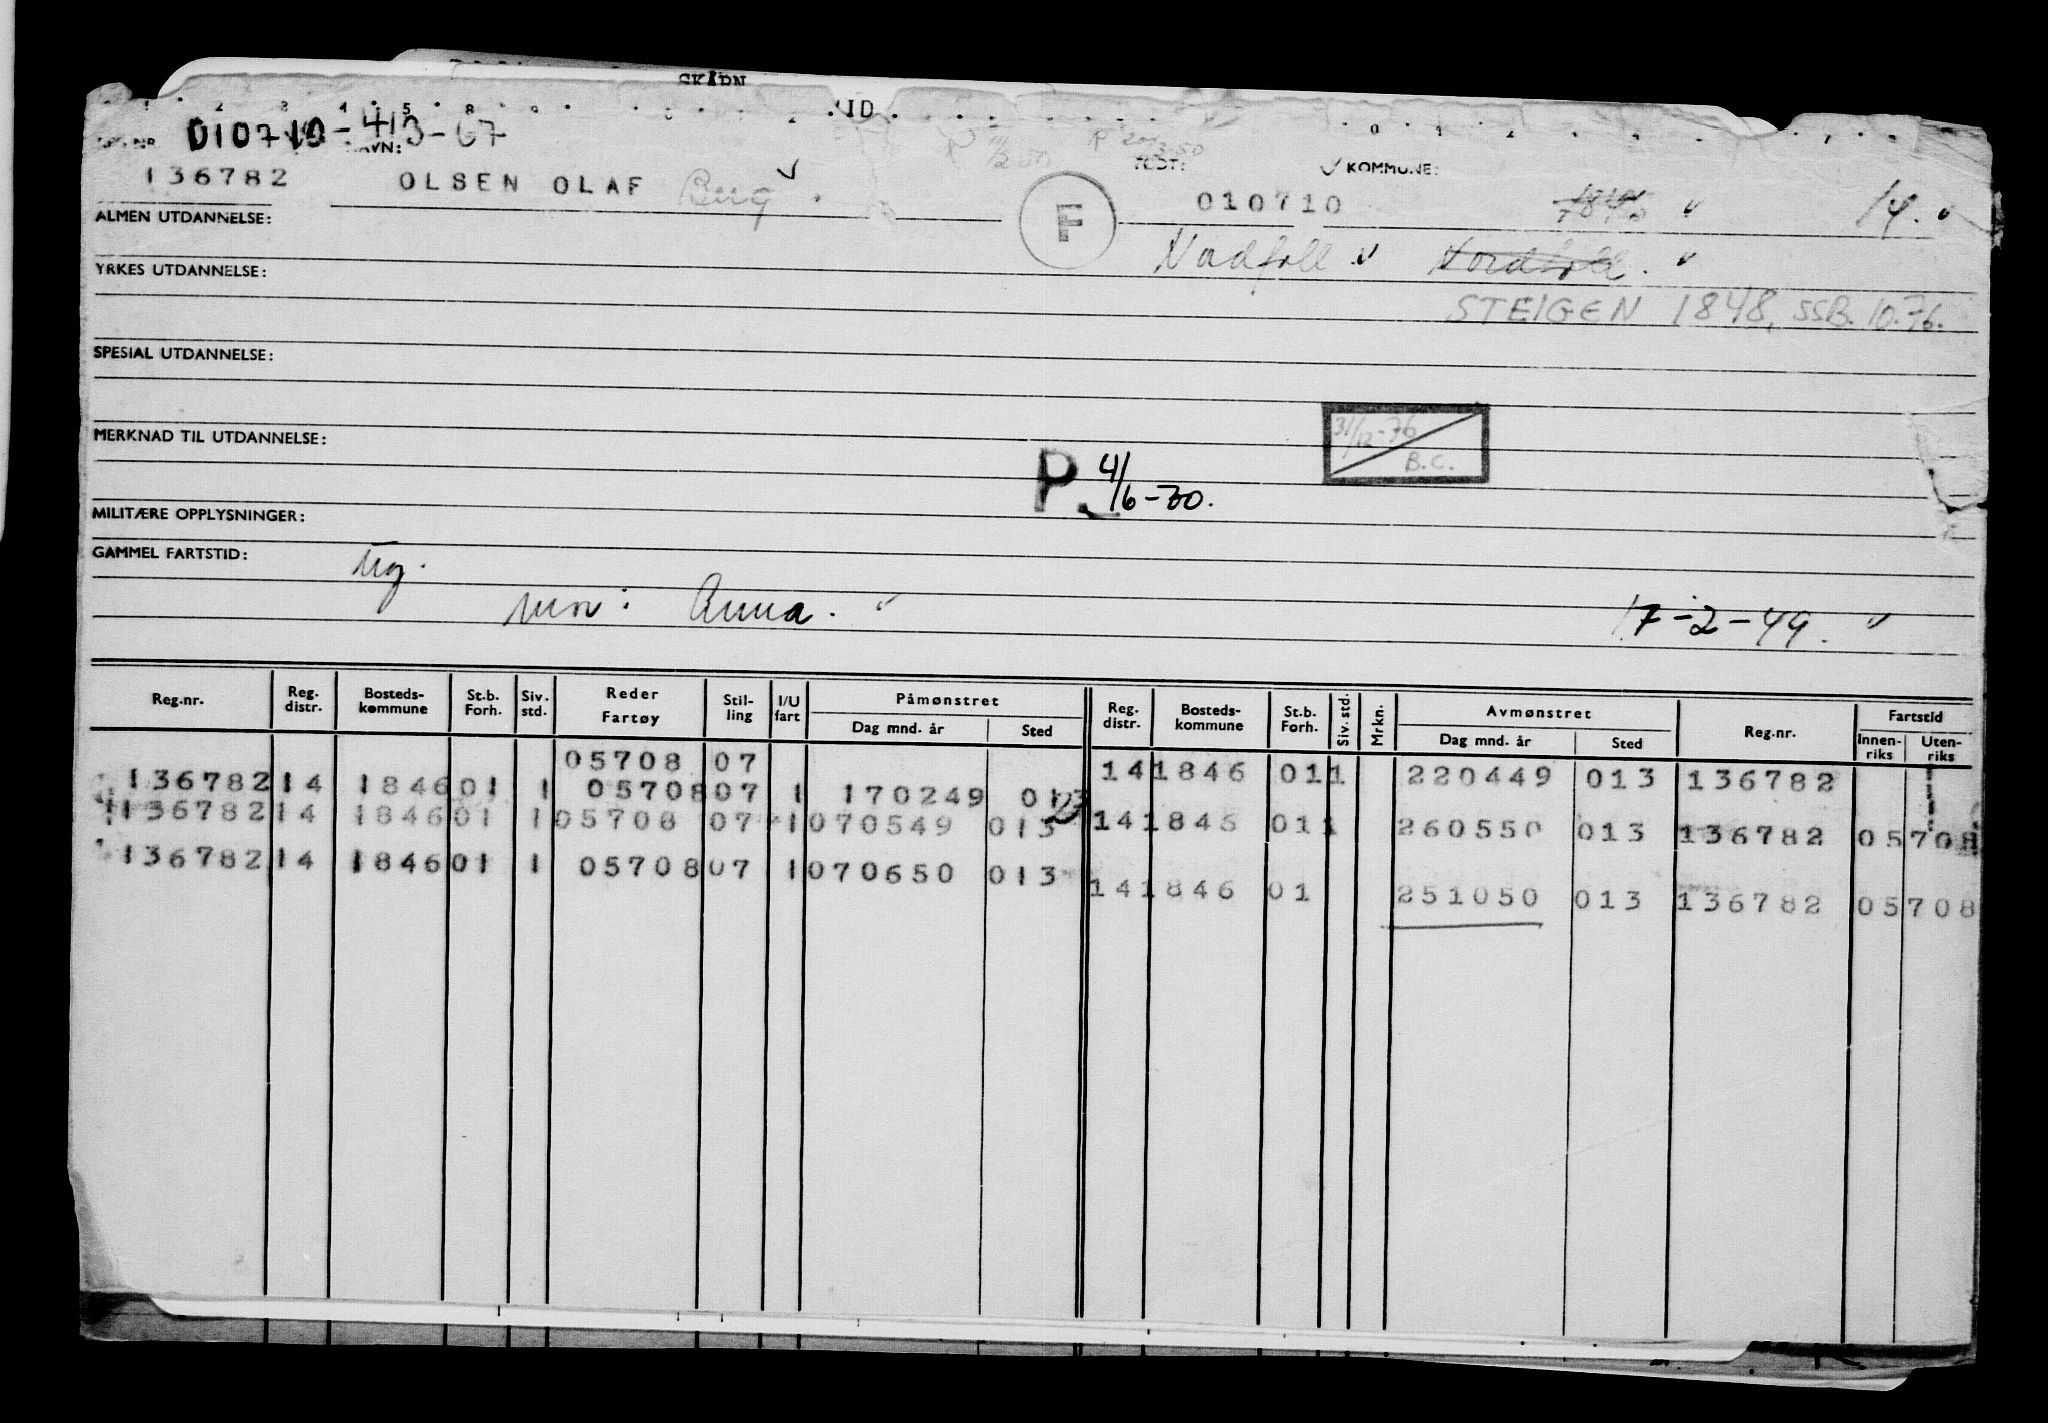 SKARN
ID
010710-413-67
NAVN: FØDT: KOMMUNE:
136782 OLSEN OLAF 010710 14.
ALMEN UTDANNELSE: F
YRKES UTDANNELSE: Nordfold
STEIGEN 1848, SSB. 10.76.
SPESIAL UTDANNELSE:
31/12-76
MERKNAD TIL UTDANNELSE: B.C.
P. 4/6-70.
MILITÆRE OPPLYSNINGER:
GAMMEL FARTSTID:
mor: Anna. 17-2-49.
Reg.nr. Reg. distr. Bosteds-kommune St.b. Forh. Siv. std. Reder Fartøy Stil-ling I/U fart Påmønstret Dag mnd. år Sted Reg. distr. Bosteds-kommune St.b. Forh. Siv. std. Mrkn. Avmønstret Dag mnd. år Sted Reg.nr. Fartstid Innen-riks Uten-riks
05708 07 14 1846 01 1 220449 013 136782
136782 14 1846 01 1 05708 07 1 170249 013
136782 14 1846 01 1 05708 07 1 070549 013 14 1846 01 1 260550 013 136782 05708
136782 14 1846 01 1 05708 07 1 070650 013
14 1846 01 251050 013 136782 05708